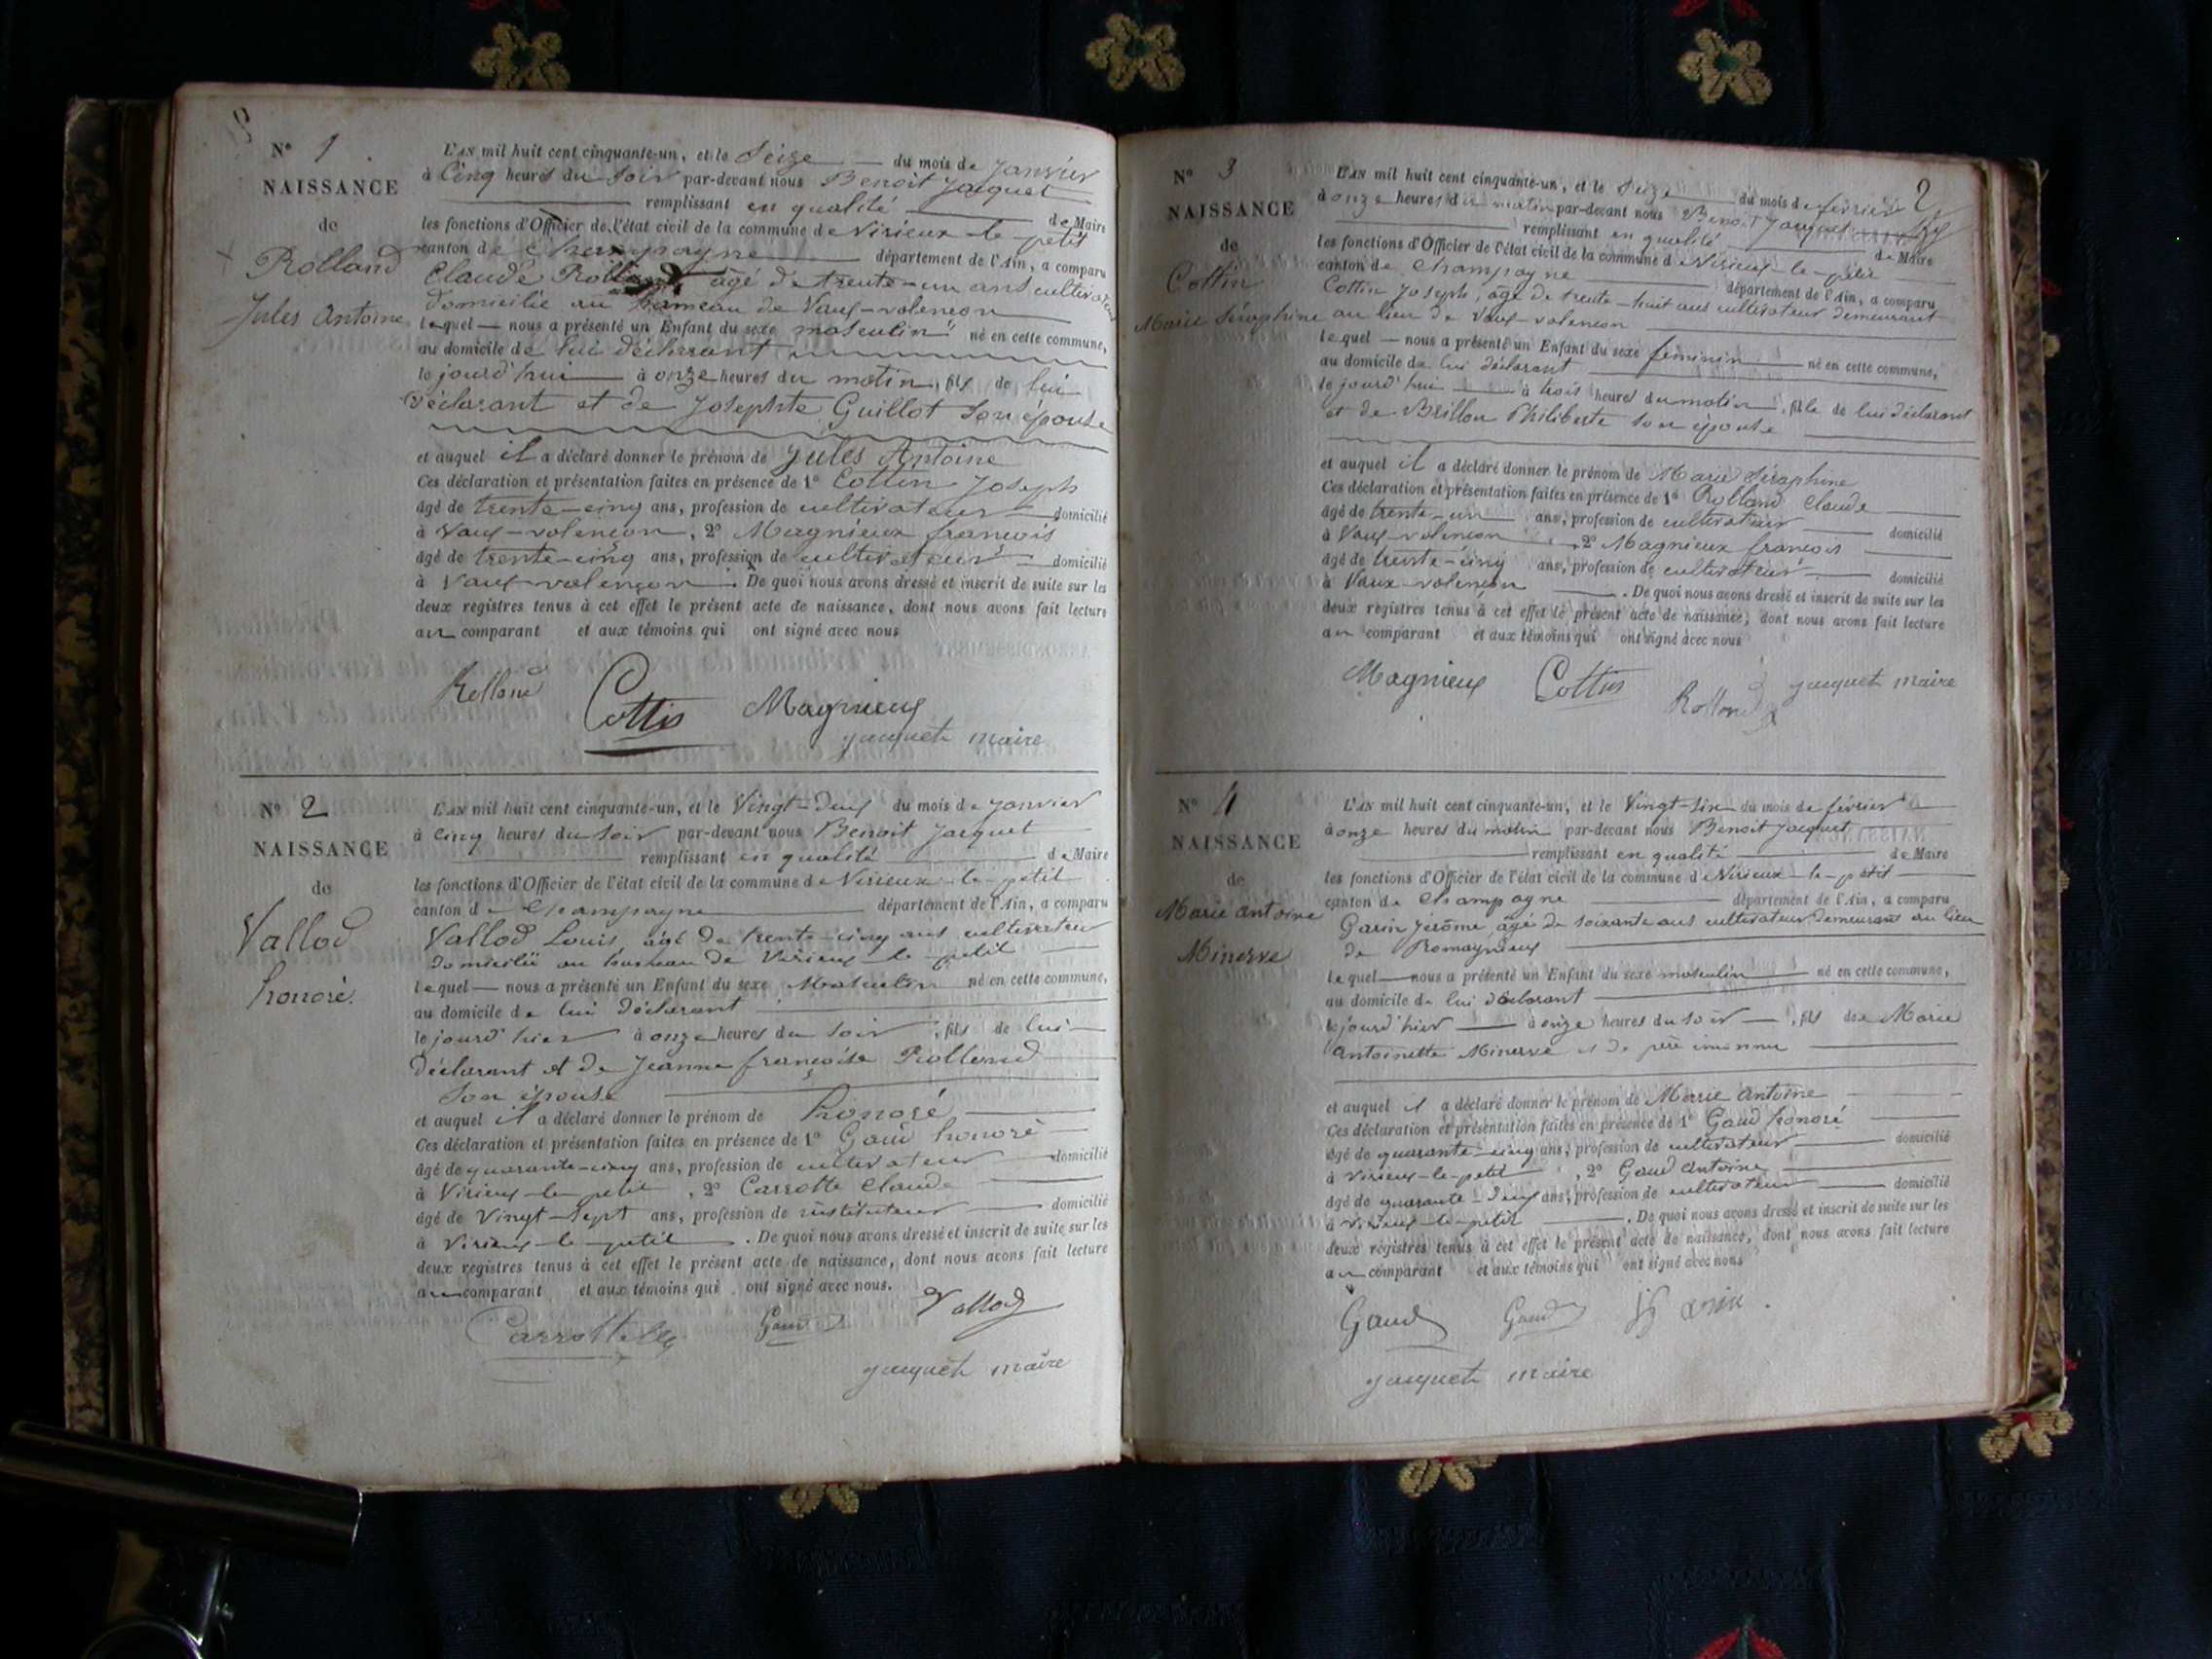 N° 1
NAISSANCE
de
Rolland
Jules Antoine
L'AN mil huit cent cinquante-un, et le Seize du mois de Janvier
à Cinq heures du Soir par-devant nous Benoit Jacquet
remplissant en qualité de Maire
les fonctions d'Officier de l'état civil de la commune de Virieux-le-petit
canton de Champagne département de l'Ain, a comparu
Claude Rolland âgé de trente-un ans cultivateur
domicilié au hameau de Vaux-valencon
lequel nous a présenté un Enfant du sexe masculin né en cette commune,
au domicile de lui déclarant
le jourd'hui à onze heures du matin, fils de lui
déclarant et de Josephte Guillot son épouse
et auquel il a déclaré donner le prénom de Jules Antoine
Ces déclaration et présentation faites en présence de 1° Cottin Joseph
âgé de trente-cinq ans, profession de cultivateur domicilié
à Vaux-valencon, 2° Magnieux françois
âgé de trente-cinq ans, profession de cultivateur domicilié
à Vaux-valençon. De quoi nous avons dressé et inscrit de suite sur les
deux registres tenus à cet effet le présent acte de naissance, dont nous avons fait lecture
au comparant et aux témoins qui ont signé avec nous
Rolland Cottin Magnieux
jacquet maire
N° 2
NAISSANCE
de
Vallod
honoré.
L'AN mil huit cent cinquante-un, et le Vingt-deux du mois de Janvier
à cinq heures du soir par-devant nous Benoit Jacquet
remplissant en qualité de Maire
les fonctions d'Officier de l'état civil de la commune de Virieux-le-petit
canton de Champagne département de l'Ain, a comparu
Vallod Louis, âgé de trente-cinq ans cultivateur
domicilié au hameau de Virieux-le-petit
lequel nous a présenté un Enfant du sexe Masculin né en cette commune,
au domicile de lui déclarant
le jourd'hier à onze heures du soir, fils de lui
déclarant et de Jeanne françoise Rolland
son épouse
et auquel il a déclaré donner le prénom de honoré
Ces déclaration et présentation faites en présence de 1° Gaud honoré
âgé de quarante-cinq ans, profession de cultivateur domicilié
à Virieux-le-petit, 2° Carrotte Claude
âgé de Vingt-sept ans, profession de instituteur domicilié
à Virieux-le-petit. De quoi nous avons dressé et inscrit de suite sur les
deux registres tenus à cet effet le présent acte de naissance, dont nous avons fait lecture
au comparant et aux témoins qui ont signé avec nous.
Carrotte Gaud Vallod
jacquet maire
2
N° 3
NAISSANCE
de
Cottin
Marie Séraphine
L'AN mil huit cent cinquante-un, et le seize du mois de février
à onze heures du matin par-devant nous Benoit Jacquet
remplissant en qualité de Maire
les fonctions d'Officier de l'état civil de la commune de Virieux-le-petit
canton de Champagne département de l'Ain, a comparu
Cottin Joseph, âgé de trente-huit ans cultivateur demeurant
au lieu de Vaux-valencon
lequel nous a présenté un Enfant du sexe féminin né en cette commune,
au domicile de lui déclarant
le jourd'hui à trois heures du matin, fille de lui déclarant
et de Brillon Philiberte son épouse
et auquel il a déclaré donner le prénom de Marie Séraphine
Ces déclaration et présentation faites en présence de 1° Rolland Claude
âgé de trente-un ans, profession de cultivateur domicilié
à Vaux-valencon, 2° Magnieux françois
âgé de trente-cinq ans, profession de cultivateur domicilié
à Vaux-valençon. De quoi nous avons dressé et inscrit de suite sur les
deux registres tenus à cet effet le présent acte de naissance, dont nous avons fait lecture
au comparant et aux témoins qui ont signé avec nous
Magnieux Cottin Rolland jacquet maire
N° 4
NAISSANCE
de
Marie Antoine
Minerve
L'AN mil huit cent cinquante-un, et le Vingt-six du mois de février
à onze heures du matin par-devant nous Benoit Jacquet
remplissant en qualité de Maire
les fonctions d'Officier de l'état civil de la commune de Virieux-le-petit
canton de Champagne département de l'Ain, a comparu
Garin Jérôme âgé de soixante ans cultivateur demeurant au lieu
de Romagnieux
lequel nous a présenté un Enfant du sexe masculin né en cette commune,
au domicile de lui déclarant
le jourd'hier à onze heures du soir, fils de Marie
Antoinette Minerve et de père inconnu
et auquel il a déclaré donner le prénom de Marie Antoine
Ces déclaration et présentation faites en présence de 1° Gaud honoré
âgé de quarante-cinq ans, profession de cultivateur domicilié
à Virieux-le-petit, 2° Gaud Antoine
âgé de quarante-deux ans, profession de cultivateur domicilié
à Virieux-le-petit. De quoi nous avons dressé et inscrit de suite sur les
deux registres tenus à cet effet le présent acte de naissance, dont nous avons fait lecture
au comparant et aux témoins qui ont signé avec nous
Gaud Gaud Garin
jacquet maire